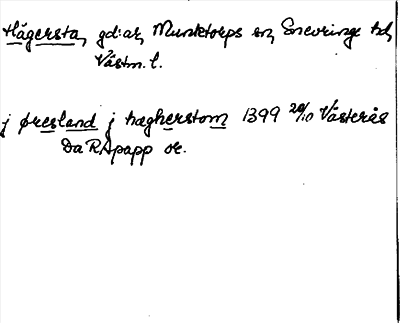 Hägersta, gd:ar, Munktorps sn, Snevringe hd,
Västm. l.
j øresland j hægherstom 1399 20/10 Västerås
Da RApapp or.